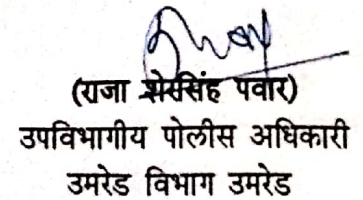 (राजा शेरसिंह पवार)
उपविभागीय पोलीस अधिकारी
उमरेड विभाग उमरेड